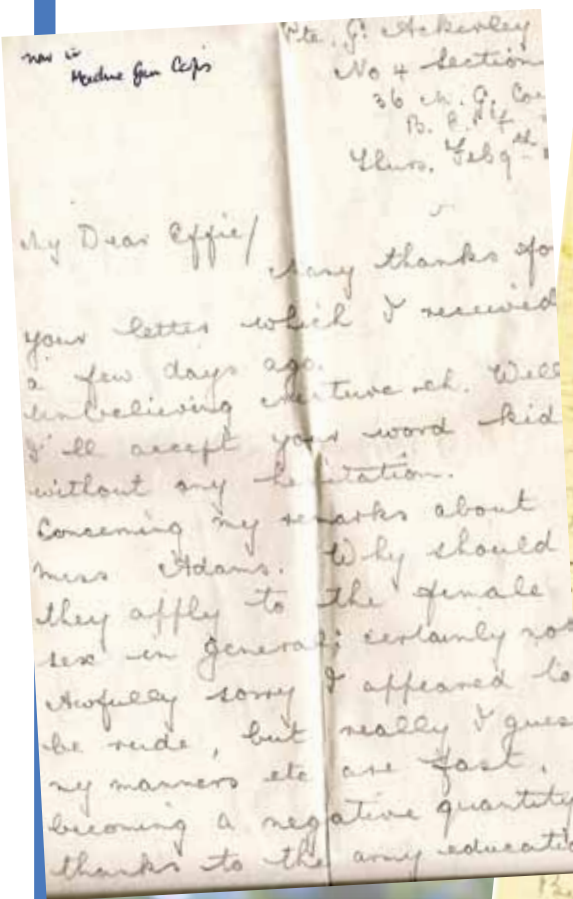 now in
Machine Gun Corps
Pte. G. Ackerley
No 4 Section
36 M. G. Co
B. E. F.
Thurs. Feb 9th
My Dear Effie/
Many thanks fo
your letter which I received
a few days ago.
Unbelieving creature eh. Well
I'll accept your word kid
without any hesitation.
Concerning my remarks about
Miss Adams. Why should
they apply to the female
sex in general; certainly not
Awfully sorry I appeared to
be rude, but really I gues
my manners etc are fast.
becoming a negative quantity
thanks to the army educatio